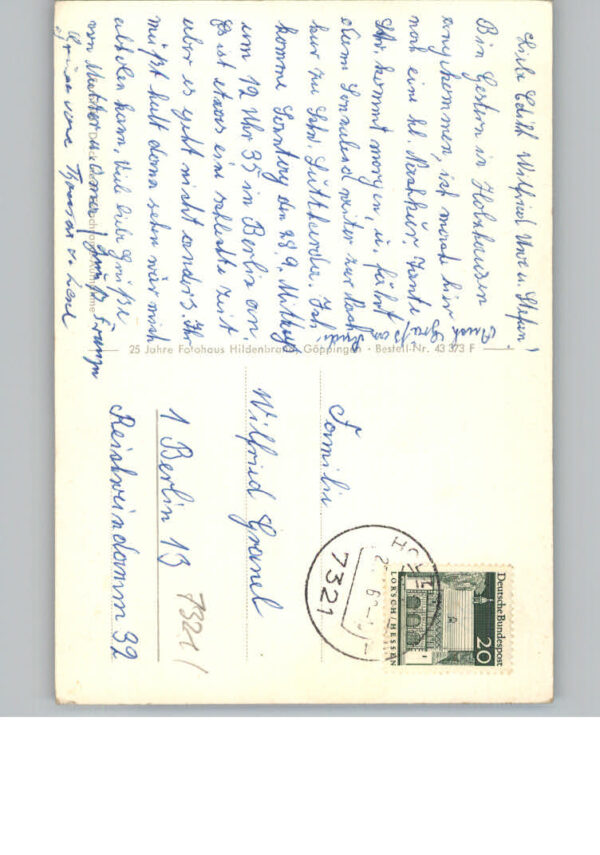 Liebe Edith Wilfried Uwe u. Stefan!
Bin Gestern in Holzhausen
angekommen, ist mond hier
noch eine kl. Nachkur. Tante
Ihr. kommt morgen, u. fährt
dann Sonnabend weiter zur Nach
kur zu Schw. Luttharda. Ich
komme Sonntag den 28.9. Mittag
um 12 Uhr 35 in Berlin an.
Es ist etwas eine schlechte Zeit
aber es geht nicht anders. Ihr
müßt halt dann sehn wer mich
abholen kann, Viele liebe Grüße
von Mutter u. Oma
Auch Gruß an
Grüße von
25 Jahre Fotohaus Hildenbrand, Göppingen · Bestell-Nr. 43 373 F
Familie
Wilfried Granel
1 Berlin 13
Reichweindamm 32
7321/
HOLZ
7321
Deutsche Bundespost
20
LORSCH/HESSEN